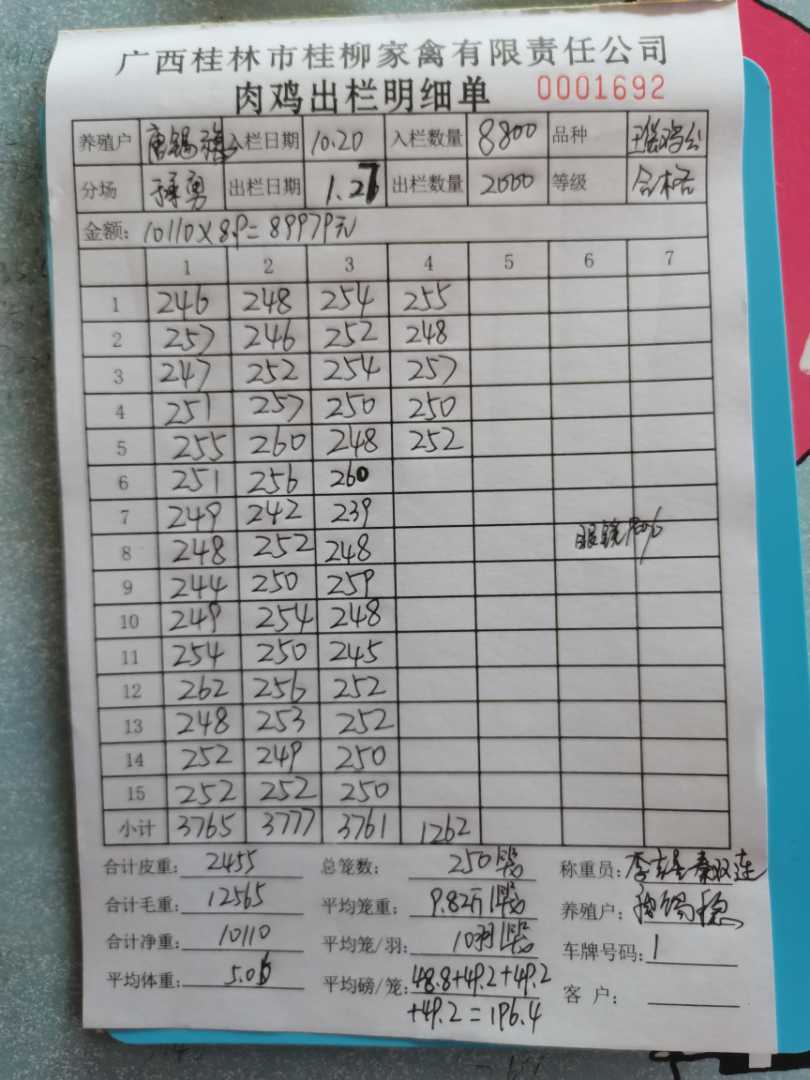 广西桂林市桂柳家禽有限责任公司
肉鸡出栏明细单 0001692
养殖户 唐锡 入栏日期 10.20 入栏数量 8800 品种
分场 勇 出栏日期 1.27 出栏数量 2000 等级 合格
金额: 10110×8.9=89979元
1 2 3 4 5 6 7
1 246 248 254 255
2 257 246 252 248
3 247 252 254 257
4 251 257 250 250
5 255 260 248 252
6 251 256 260
7 249 242 239
8 248 252 248 眼镜
9 244 250 259
10 249 254 248
11 254 250 245
12 262 256 252
13 248 253 252
14 252 249 250
15 252 252 250
小计 3765 3777 3761 1262
合计皮重: 2455 总笼数: 250 称重员: 李 秦双连
合计毛重: 12565 平均笼重: 9.82斤 养殖户: 唐锡
合计净重: 10110 平均笼/羽: 10羽 车牌号码: 1
平均体重: 5.06 平均磅/笼: 48.8+49.2+49.2 客户:
+49.2=196.4